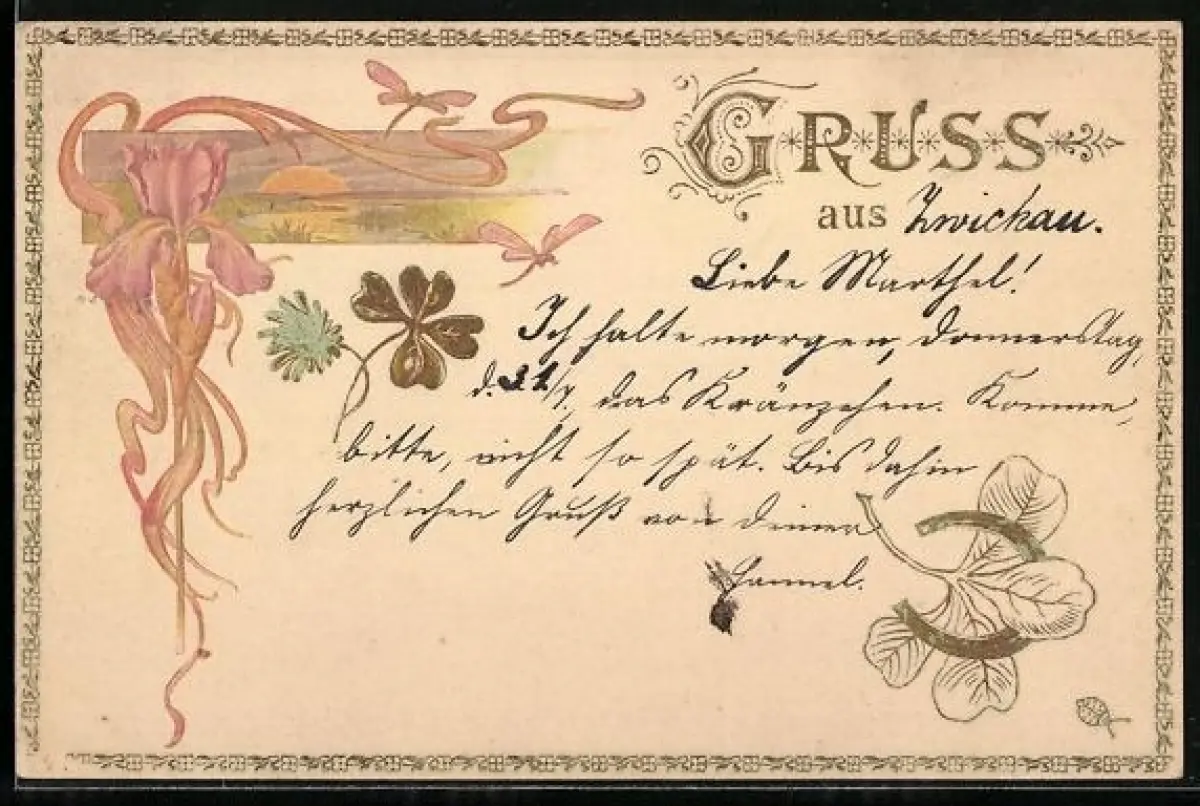 GRUSS
aus Zwickau.
Liebe Marthel!
Ich halte morgen, Donnerstag,
d. 31/7. das Kränzchen. Komme,
bitte, nicht so spät. Bis dahin
herzlichen Gruß von deiner
Hannel.